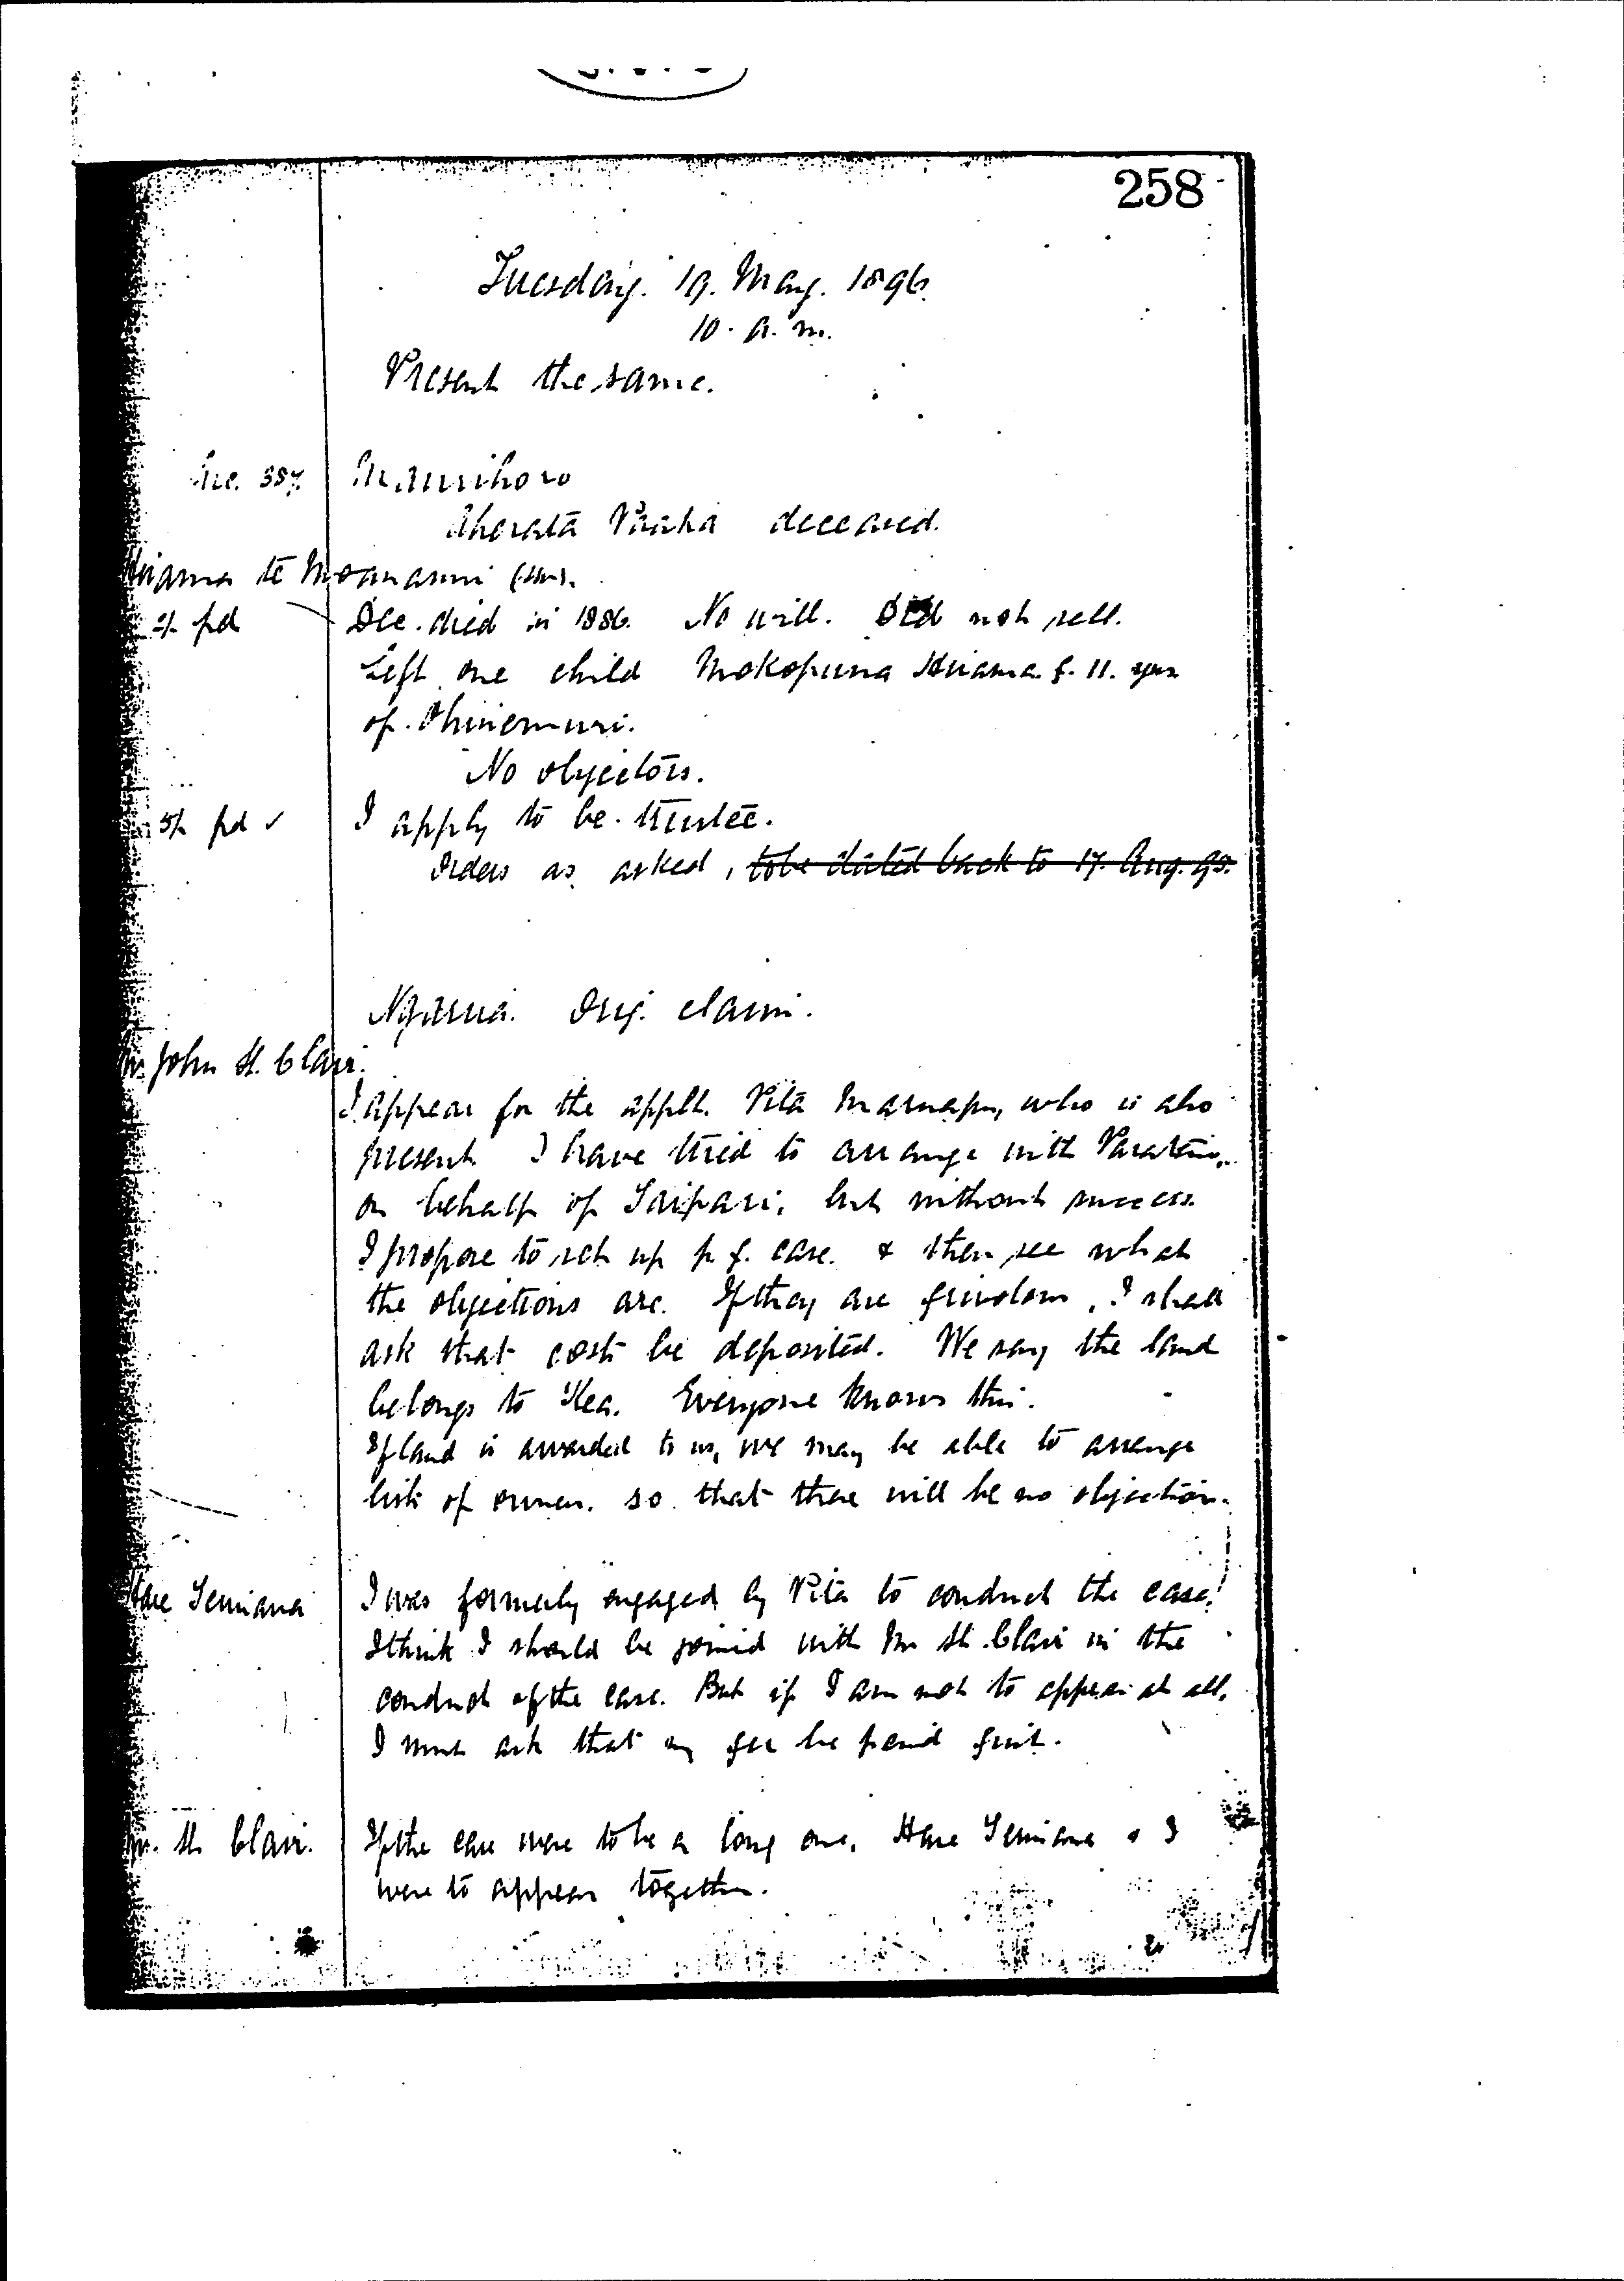 258
Tuesday. 19. May. 1896.
10. a. m.
Present the same.
Suc. 387. Maurihoro
Akerata Paaka deceased.
Hirama te Moananui (sw).
2/- pd Dec. died in 1886. No will. Did not sell.
Left one child Mokopuna Hirama. f. 11. yrs
of Ohinemuri.
No objectors.
5/- pd ✓ I apply to be trustee.
Orders as asked, to be dated back to 17. Aug. 95.
Ngarua. Orig. claim.
Mr. John St. Clair.
I appear for the applt. Pita, who is also
present. I have tried to arrange with
on behalf of Taipari, but without success.
I propose to set up p. f. case. & then see what
the objections are. If they are frivolous, I shall
ask that costs be deposited. We say the land
belongs to Kea. Everyone knows this.
If land is awarded to us, we may be able to arrange
lists of owners. so that there will be no objection.
Hare Teimana I was formerly engaged by Pita to conduct the case.
I think I should be joined with Mr St. Clair in the
conduct of the case. But if I am not to appear at all,
I must ask that my fee be paid first.
Mr. St. Clair. If the case were to be a long one, Hare Teimana & I
were to appear together.